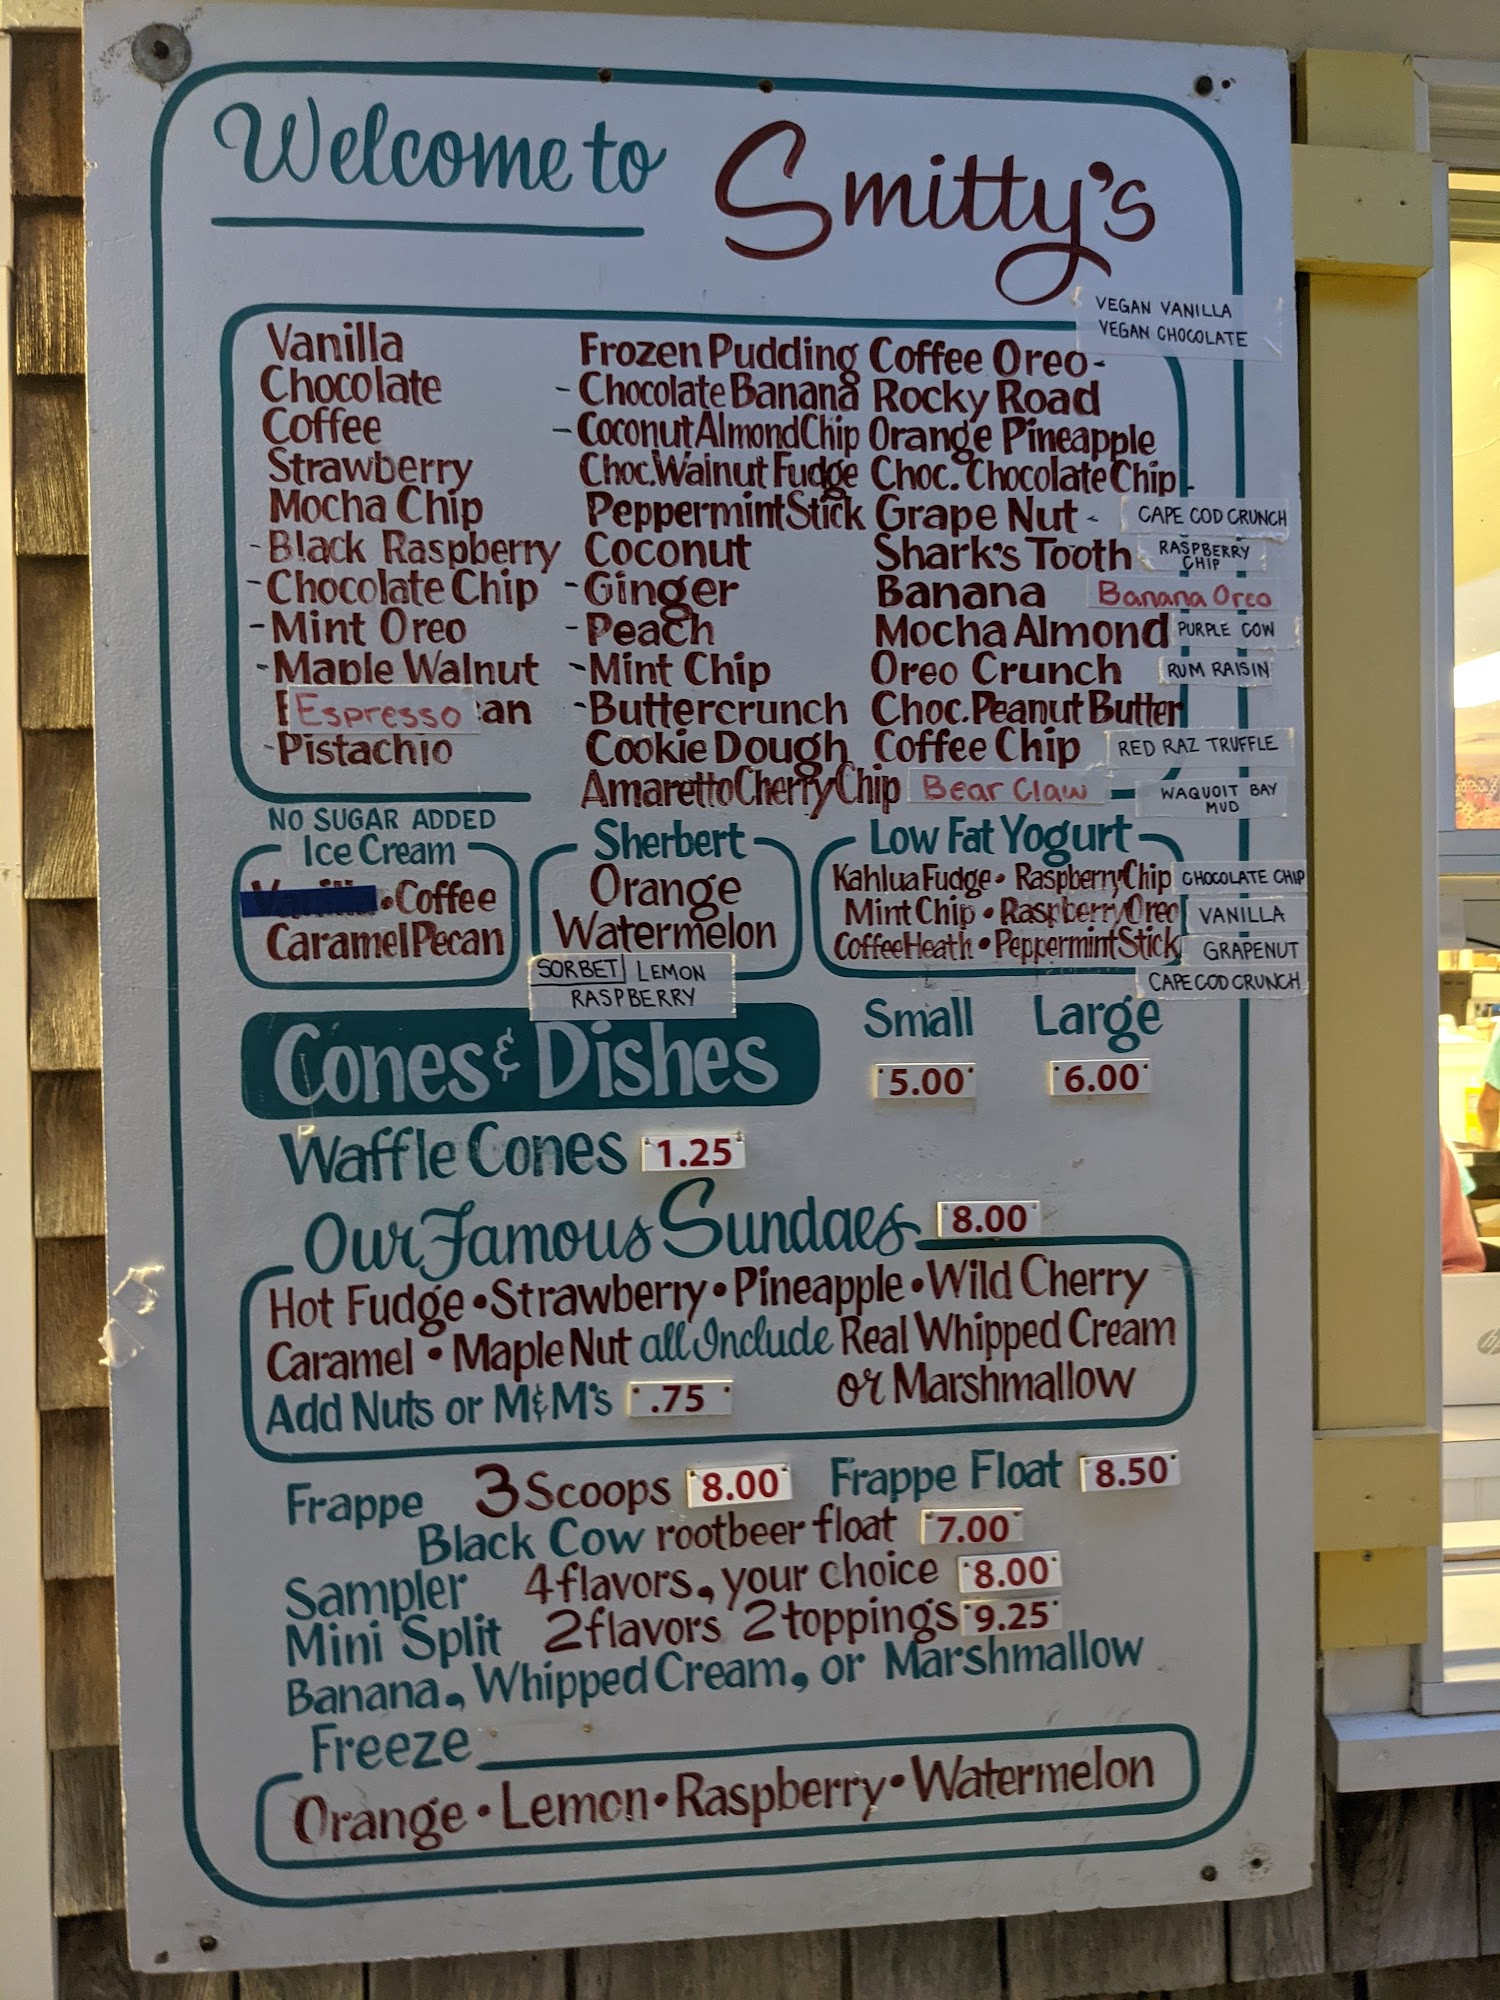 Welcome to Smitty's
VEGAN VANILLA
VEGAN CHOCOLATE
Vanilla
Chocolate
Coffee
Strawberry
Mocha Chip
- Black Raspberry
- Chocolate Chip
- Mint Oreo
- Maple Walnut
Espresso an
- Pistachio
Frozen Pudding
- Chocolate Banana
- Coconut Almond Chip
Choc. Walnut Fudge
Peppermint Stick
Coconut
- Ginger
- Peach
- Mint Chip
- Buttercrunch
Cookie Dough
Amaretto Cherry Chip
Coffee Oreo -
Rocky Road
Orange Pineapple
Choc. Chocolate Chip -
Grape Nut -
Shark's Tooth
Banana
Mocha Almond
Oreo Crunch
Choc. Peanut Butter
Coffee Chip
Bear Claw
CAPE COD CRUNCH
RASPBERRY
CHIP
Banana Oreo
PURPLE COW
RUM RAISIN
RED RAZ TRUFFLE
WAQUOIT BAY
MUD
NO SUGAR ADDED
Ice Cream
Vanilla • Coffee
Caramel Pecan
Sherbert
Orange
Watermelon
SORBET LEMON
RASPBERRY
Low Fat Yogurt
Kahlua Fudge • Raspberry Chip CHOCOLATE CHIP
Mint Chip • Raspberry Oreo VANILLA
Coffee Heath • Peppermint Stick GRAPENUT
CAPE COD CRUNCH
Small Large
Cones & Dishes 5.00 6.00
Waffle Cones 1.25
Our Famous Sundaes 8.00
Hot Fudge • Strawberry • Pineapple • Wild Cherry
Caramel • Maple Nut all Include Real Whipped Cream
Add Nuts or M&M's .75 or Marshmallow
Frappe 3 Scoops 8.00 Frappe Float 8.50
Black Cow rootbeer float 7.00
Sampler 4 flavors, your choice 8.00
Mini Split 2 flavors 2 toppings 9.25
Banana, Whipped Cream, or Marshmallow
Freeze
Orange • Lemon • Raspberry • Watermelon
hp